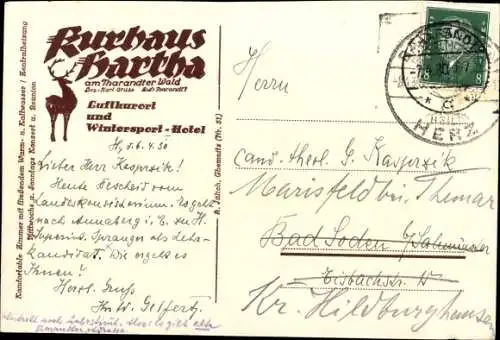 Kurhaus
Hartha
am Tharandter Wald
Bes.: Karl Gruße Ruf: Tharandt
Luftkurort
und
Wintersport-Hotel
Komfortable Zimmer mit fließendem Warm- u. Kaltwasser / Zentralheizung
Mittwochs u. Sonntags Konzert u. Reunion
H., d. 6.4.30
Lieber Herr Kasprzik!
Heute Bescheid vom
Landeskonsistorium. Es geht
nach Annaberg i. E. zu H.
Superint. Spranger als Lehr-
kandidat. Wie ergeht es
Ihnen?
Herzl. Gruß
Ihr W. Gelfert
Herrn
cand. theol. G. Kasprzik
Marisfeld bei Themar
Bad Soden b/Salmünster
Eisbachstr. 10
Kr. Hildburghausen
8 8
HERZ